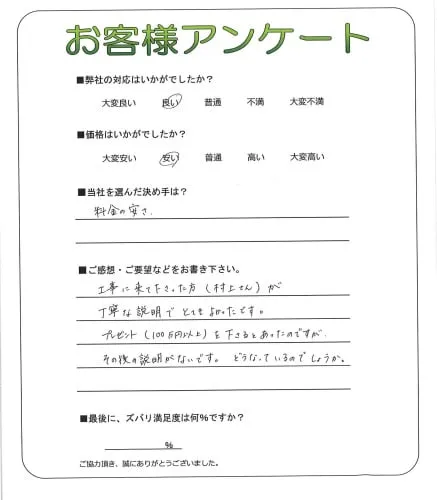 お客様アンケート
■弊社の対応はいかがでしたか？
大変良い 良い 普通 不満 大変不満
■価格はいかがでしたか？
大変安い 安い 普通 高い 大変高い
■当社を選んだ決め手は？
料金の安さ.
■ご感想・ご要望などをお書き下さい。
工事に来て下さった方（村上さん）が
丁寧な説明で とても よかったです。
プレゼント（100万円以上）を下さるとあったのですが、
その後の説明がないです。 どうなっているのでしょうか。
■最後に、ズバリ満足度は何%ですか？
%
ご協力頂き、誠にありがとうございました。